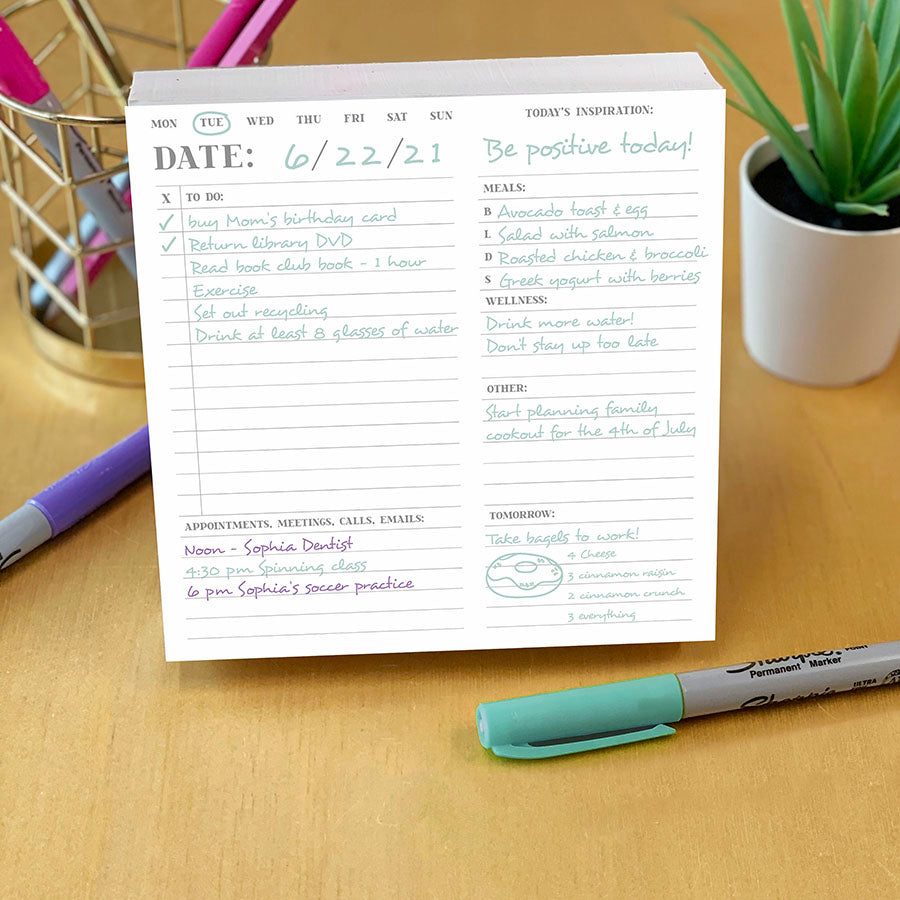 MON TUE WED THU FRI SAT SUN
DATE: 6/22/21
X TO DO:
✓ buy Mom's birthday card
✓ Return library DVD
Read book club book - 1 hour
Exercise
Set out recycling
Drink at least 8 glasses of water
APPOINTMENTS, MEETINGS, CALLS, EMAILS:
Noon - Sophia Dentist
4:30 pm Spinning class
6 pm Sophia's soccer practice
TODAY'S INSPIRATION:
Be positive today!
MEALS:
B Avocado toast & egg
L Salad with salmon
D Roasted chicken & broccoli
S Greek yogurt with berries
WELLNESS:
Drink more water!
Don't stay up too late
OTHER:
Start planning family
cookout for the 4th of July
TOMORROW:
Take bagels to work!
4 Cheese
3 cinnamon raisin
2 cinnamon crunch
3 everything
Sharpie
Permanent Marker
Sharpie ULTRA